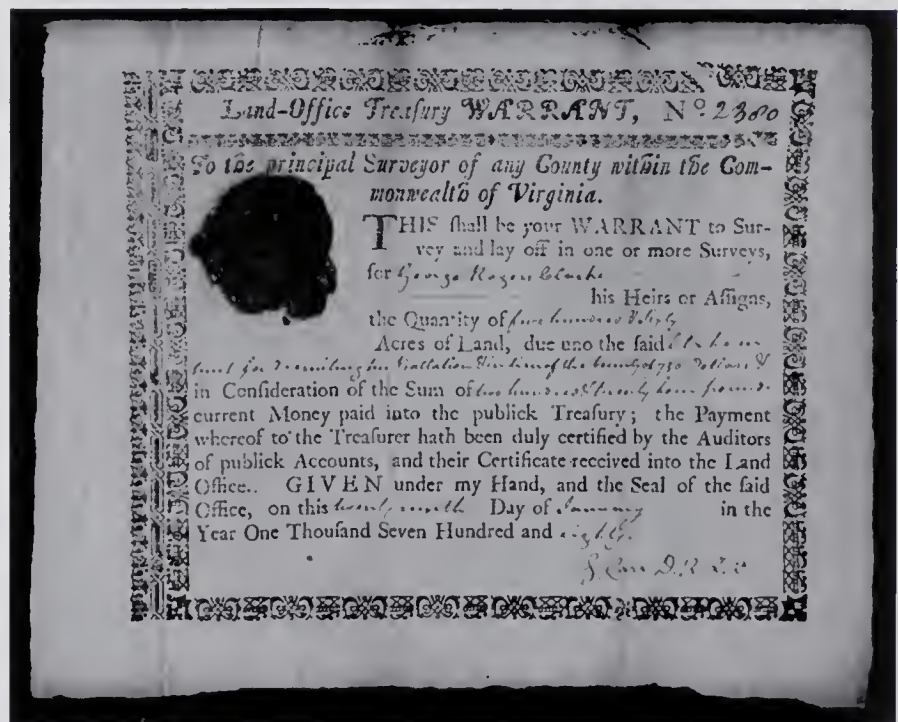 Land-Office Treaſury WARRANT, No. 2380
To the principal Surveyor of any County within the Com-
monwealth of Virginia.
THIS ſhall be your WARRANT to Sur-
vey and lay off in one or more Surveys,
for George Rogers Clarke
his Heirs or Aſſigns,
the Quantity of five hundred & ſixty
Acres of Land, due unto the ſaid
for recruiting Battalion of the bounty of 750 Dollars &
in Conſideration of the Sum of two hundred & twenty four pounds
current Money paid into the publick Treaſury; the Payment
whereof to the Treaſurer hath been duly certified by the Auditors
of publick Accounts, and their Certificate received into the Land
Office.. GIVEN under my Hand, and the Seal of the ſaid
Office, on this Day of January in the
Year One Thouſand Seven Hundred and eighty.